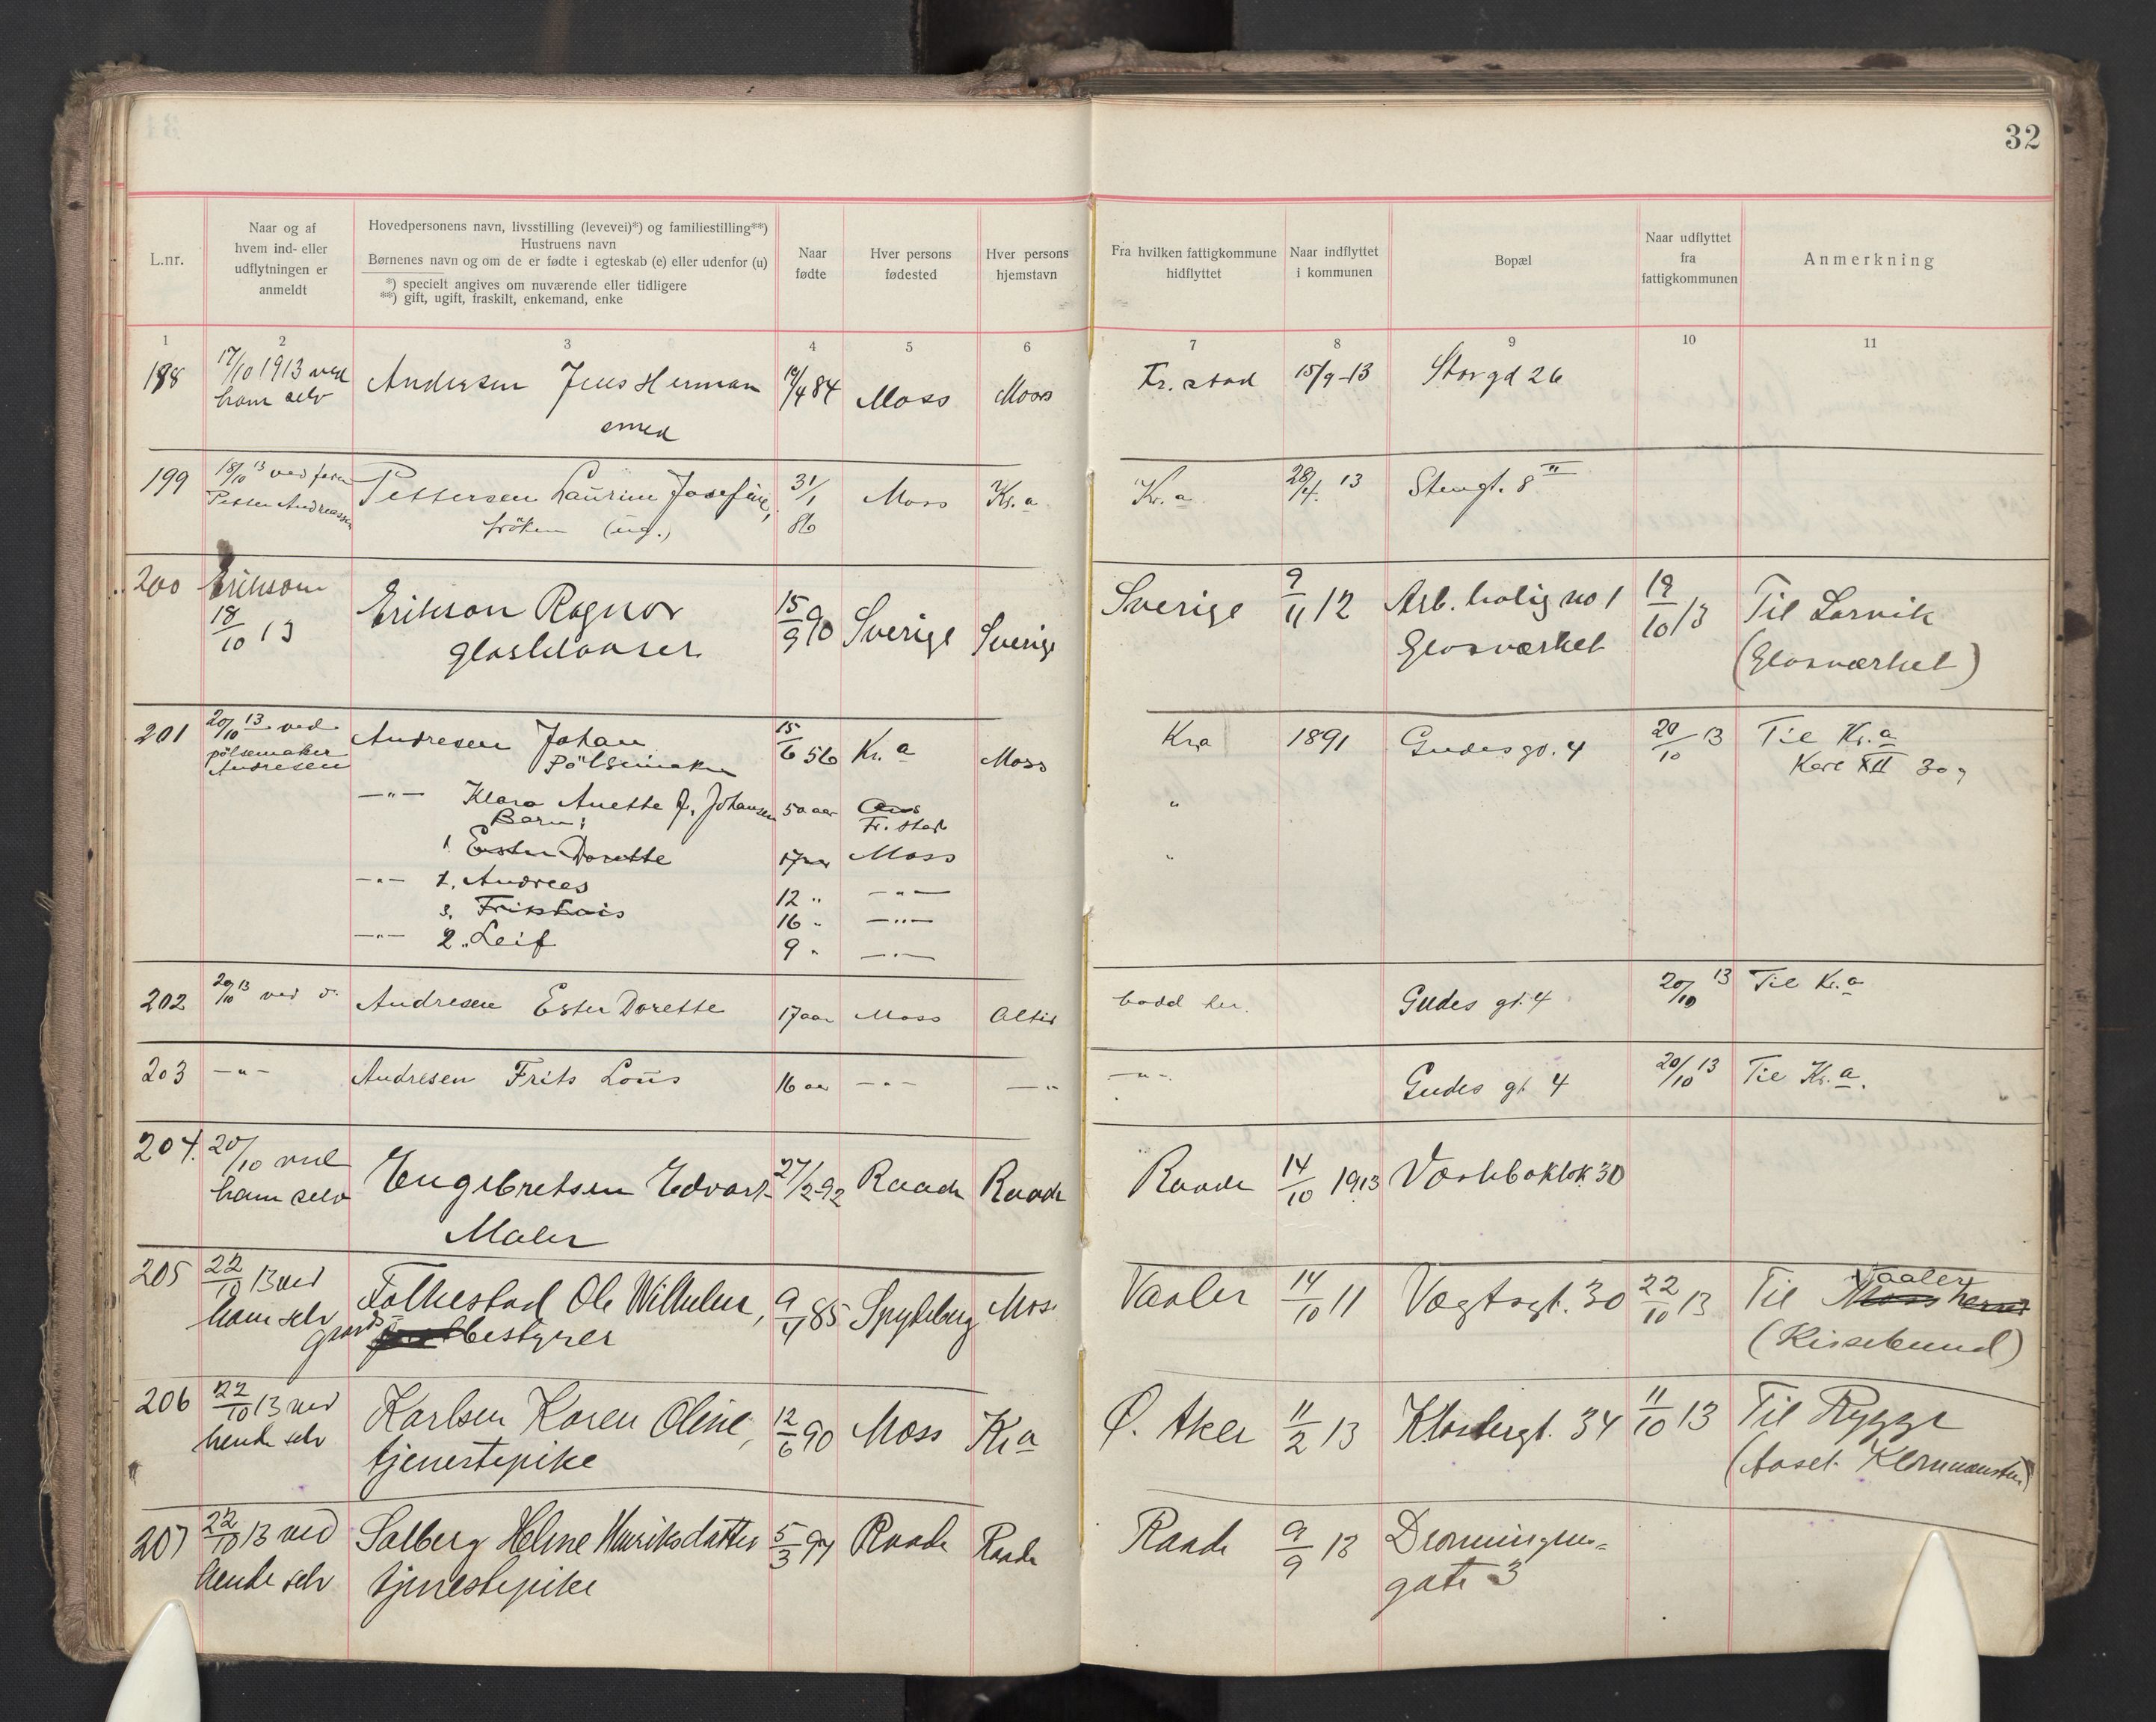 32
L.nr.
Naar og af
hvem ind- eller
udflytningen er
anmeldt
Hovedpersonens navn, livsstilling (levevei)*) og familiestilling**)
Hustruens navn
Børnenes navn og om de er fødte i egteskab (e) eller udenfor (u)
*) specielt angives om nuværende eller tidligere
**) gift, ugift, fraskilt, enkemand, enke
Naar
fødte
Hver persons
fødested
Hver persons
hjemstavn
Fra hvilken fattigkommune
hidflyttet
Naar indflyttet
i kommunen
Bopæl
Naar udflyttet
fra
fattigkommunen
Anmerkning
1 2 3 4 5 6 7 8 9 10 11
198 17/10 1913 ved Andersen Jens Herman 19/4 84 Moss Moss Fr.stad 15/9-13 Storgd 26
ham selv
smed
199 18/10 13 ved Pettersen Laurine Josefine, 31/1 86 Moss Kr.a Kr.a 28/4. 13 Stengt. 8 II
Petter Andreassen frøken (ug.)
200 Erikson Erikson Ragnar 15/9 90 Sverige Sverige Sverige 9/11 12 Arb.bolig no 1 18/10 13 Til Larvik
18/10 13 glasblaaser Glasværket (Glasværket)
201 20/10 13 ved Andresen Johan 15/6 56 Kr.a Moss Kr.a 1891 Gudesgd. 4 20/10 13 Til Kr.a
pølsemaker Pølsemaker Karl XII 30
Andresen
—"— Klara Anette f. Johansen 50 aar Fr.stad "
Barn:
1 Ester Dorette 17 aar Moss "
—"— 1. Andreas 12 " —"—
3. Frits Louis 16 " —"—
—"— 2. Leif 9 " —"—
202 20/10 13 ved d. Andresen Ester Dorette 17 aar Moss Altid bodd her. Gudes gt. 4 20/10 13 Til Kr.a
203 —"— Andresen Frits Louis 16 aar —"— —"— —"— Gudes gt 4 20/10 13 Til Kr.a.
204. 20/10 ved Engebretsen Edvart 27/2-92 Raade Raade Raade 14/10 1913 30
ham selv
Maler
205 22/10 13 ved Folkestad Ole Wilhelm, 9/4 85 Spydeberg Moss Vaaler 14/10 11 Vogtsgt. 30 22/10 13 Til Moss herred Vaaler
ham selv gaardsbestyrer (Kissebund)
206 22/10 13 ved Karlsen Karen Oline, 12/6 90 Moss Kr.a Ø. Aker 11/2 13 Klostergt. 34 11/10 13 Til Rygge
hende selv tjenestepike
207 22/10 13 ved Solberg Heline Henriksdatter 5/3 97 Raade Raade Raade 9/9 13 Dronningens-
hende selv tjenestepike gate 3